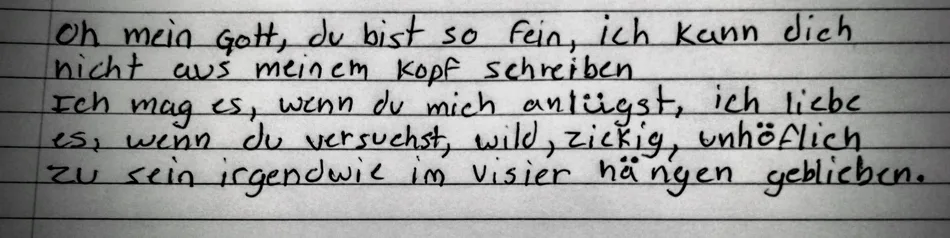 Oh mein Gott, du bist so fein, ich kann dich
nicht aus meinem Kopf schreiben
Ich mag es, wenn du mich anlügst, ich liebe
es, wenn du versuchst, wild, zickig, unhöflich
zu sein irgendwie im Visier hängen geblieben.